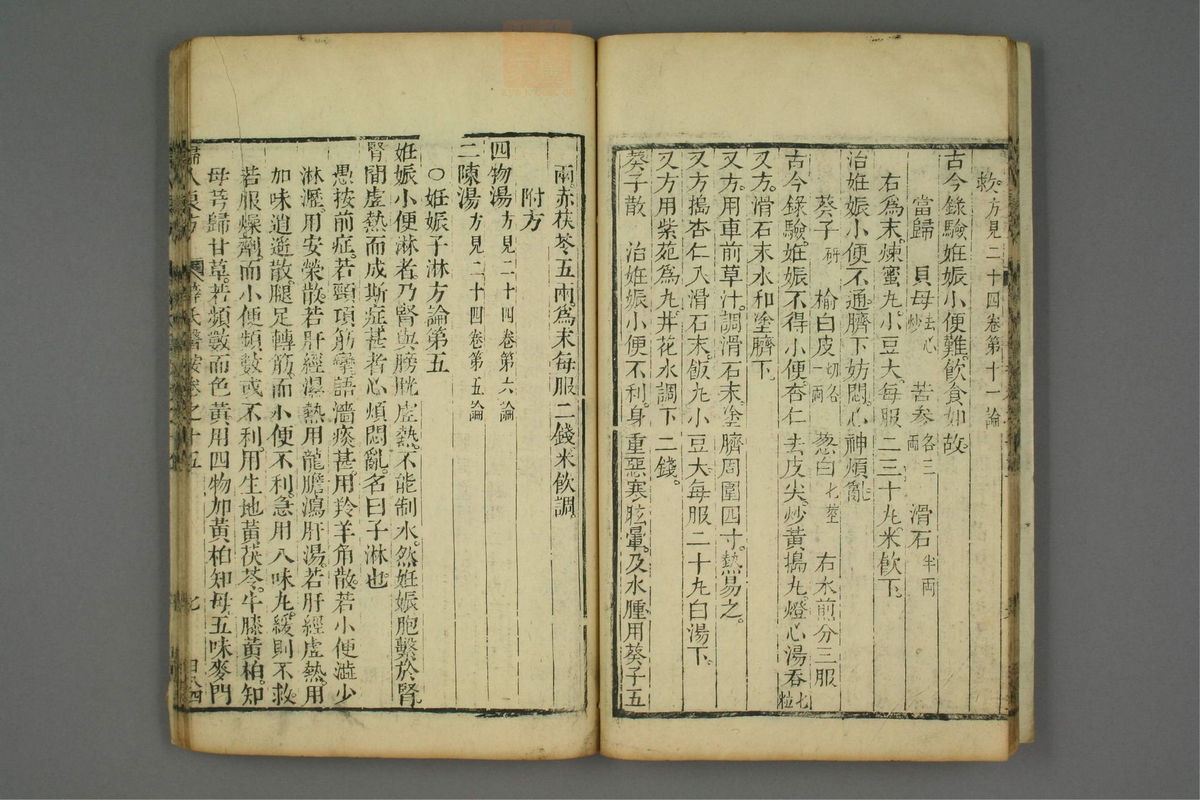 救。方見二十四卷第十一論
古今錄驗。姙娠小便難。飲食如故。
當歸 貝母去心炒 苦參各三兩 滑石半兩
右為末。煉蜜丸。小豆大。每服二三十丸。米飲下。
治姙娠小便不通。臍下妨悶。心神煩亂。
葵子研 榆白皮切各一兩 葱白七莖 右水煎分三服
古今錄驗。姙娠不得小便。杏仁去皮尖。炒黃搗丸。燈心湯吞七粒
又方。滑石末水和塗臍下。
又方。用車前草汁。調滑石末。塗臍周圍四寸。熱易之。
又方搗杏仁入滑石末。飯丸小豆大。每服二十丸白湯下。
又方用紫菀為丸。井花水調下二錢。
葵子散 治姙娠小便不利。身重惡寒眩暈。及水腫用葵子五
兩赤茯苓五兩。為末每服二錢米飲調。
附方
四物湯方見二十四卷第六論
二陳湯方見二十四卷第五論
○姙娠子淋方論第五
姙娠小便淋者。乃腎與膀胱虛熱。不能制水。然姙娠胞繫於腎。
腎間虛熱而成斯症甚者心煩悶亂。名曰子淋也。
愚按前症。若頸項筋攣。語澀痰甚。用羚羊角散。若小便澁少
淋瀝。用安榮散。若肝經濕熱。用龍膽瀉肝湯。若肝經虛熱。用
加味逍遙散。腿足轉筋。而小便不利。急用八味丸。緩則不救。
若服燥劑。而小便頻數。或不利。用生地黃。茯苓。牛膝黃柏。知
母芎歸甘草。若頻數而色黃用四物加黃柏知母。五味麥門
婦人良方 薛氏醫按卷之十五 七